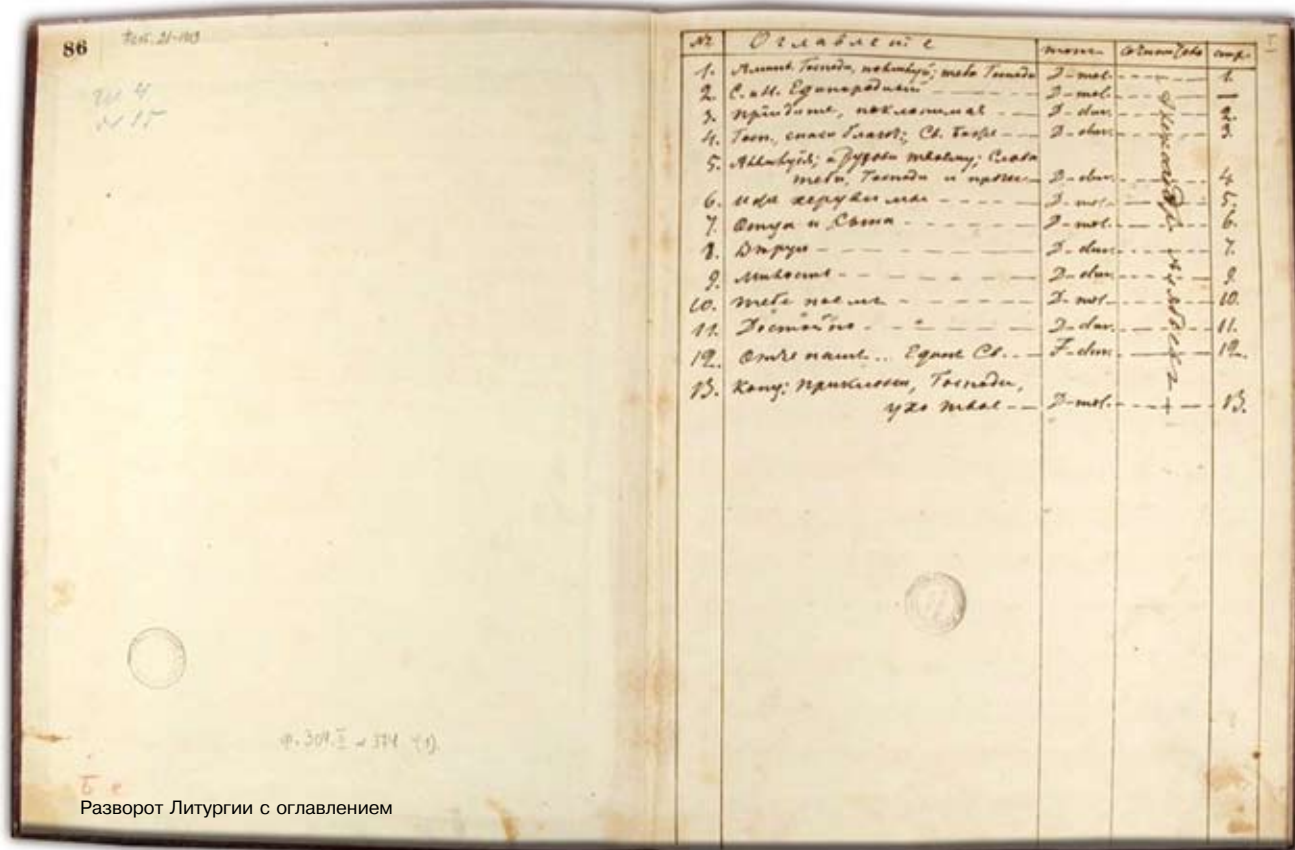 86
ф. 304. I № 374 (1).
Разворот Литургии с оглавлением
№ Оглавленіе тонъ стр.
1. Аминь Господи, помилуй; тебѣ Господи D-mol. 1.
2. С. и Н. Единородный D-mol. —
3. Пріидите, поклонимся D-dur. 2.
4. Госп., спаси благоч; Св. Боже D-dur. 3.
5. Аллилуія; и Духови твоему; Слава
тебѣ, Господи и проч. D-dur. 4
6. Иже херувимы D-mol. 5.
7. Отца и Сына D-mol. 6.
8. Вѣрую D-dur. 7.
9. Милость D-dur. 9.
10. Тебе поемъ D-mol. 10.
11. Достойно D-dur. 11.
12. Отче нашъ... Единъ Св. F-dur. 12.
13. Конц: Приклони, Господи,
ухо твое D-mol. 13.